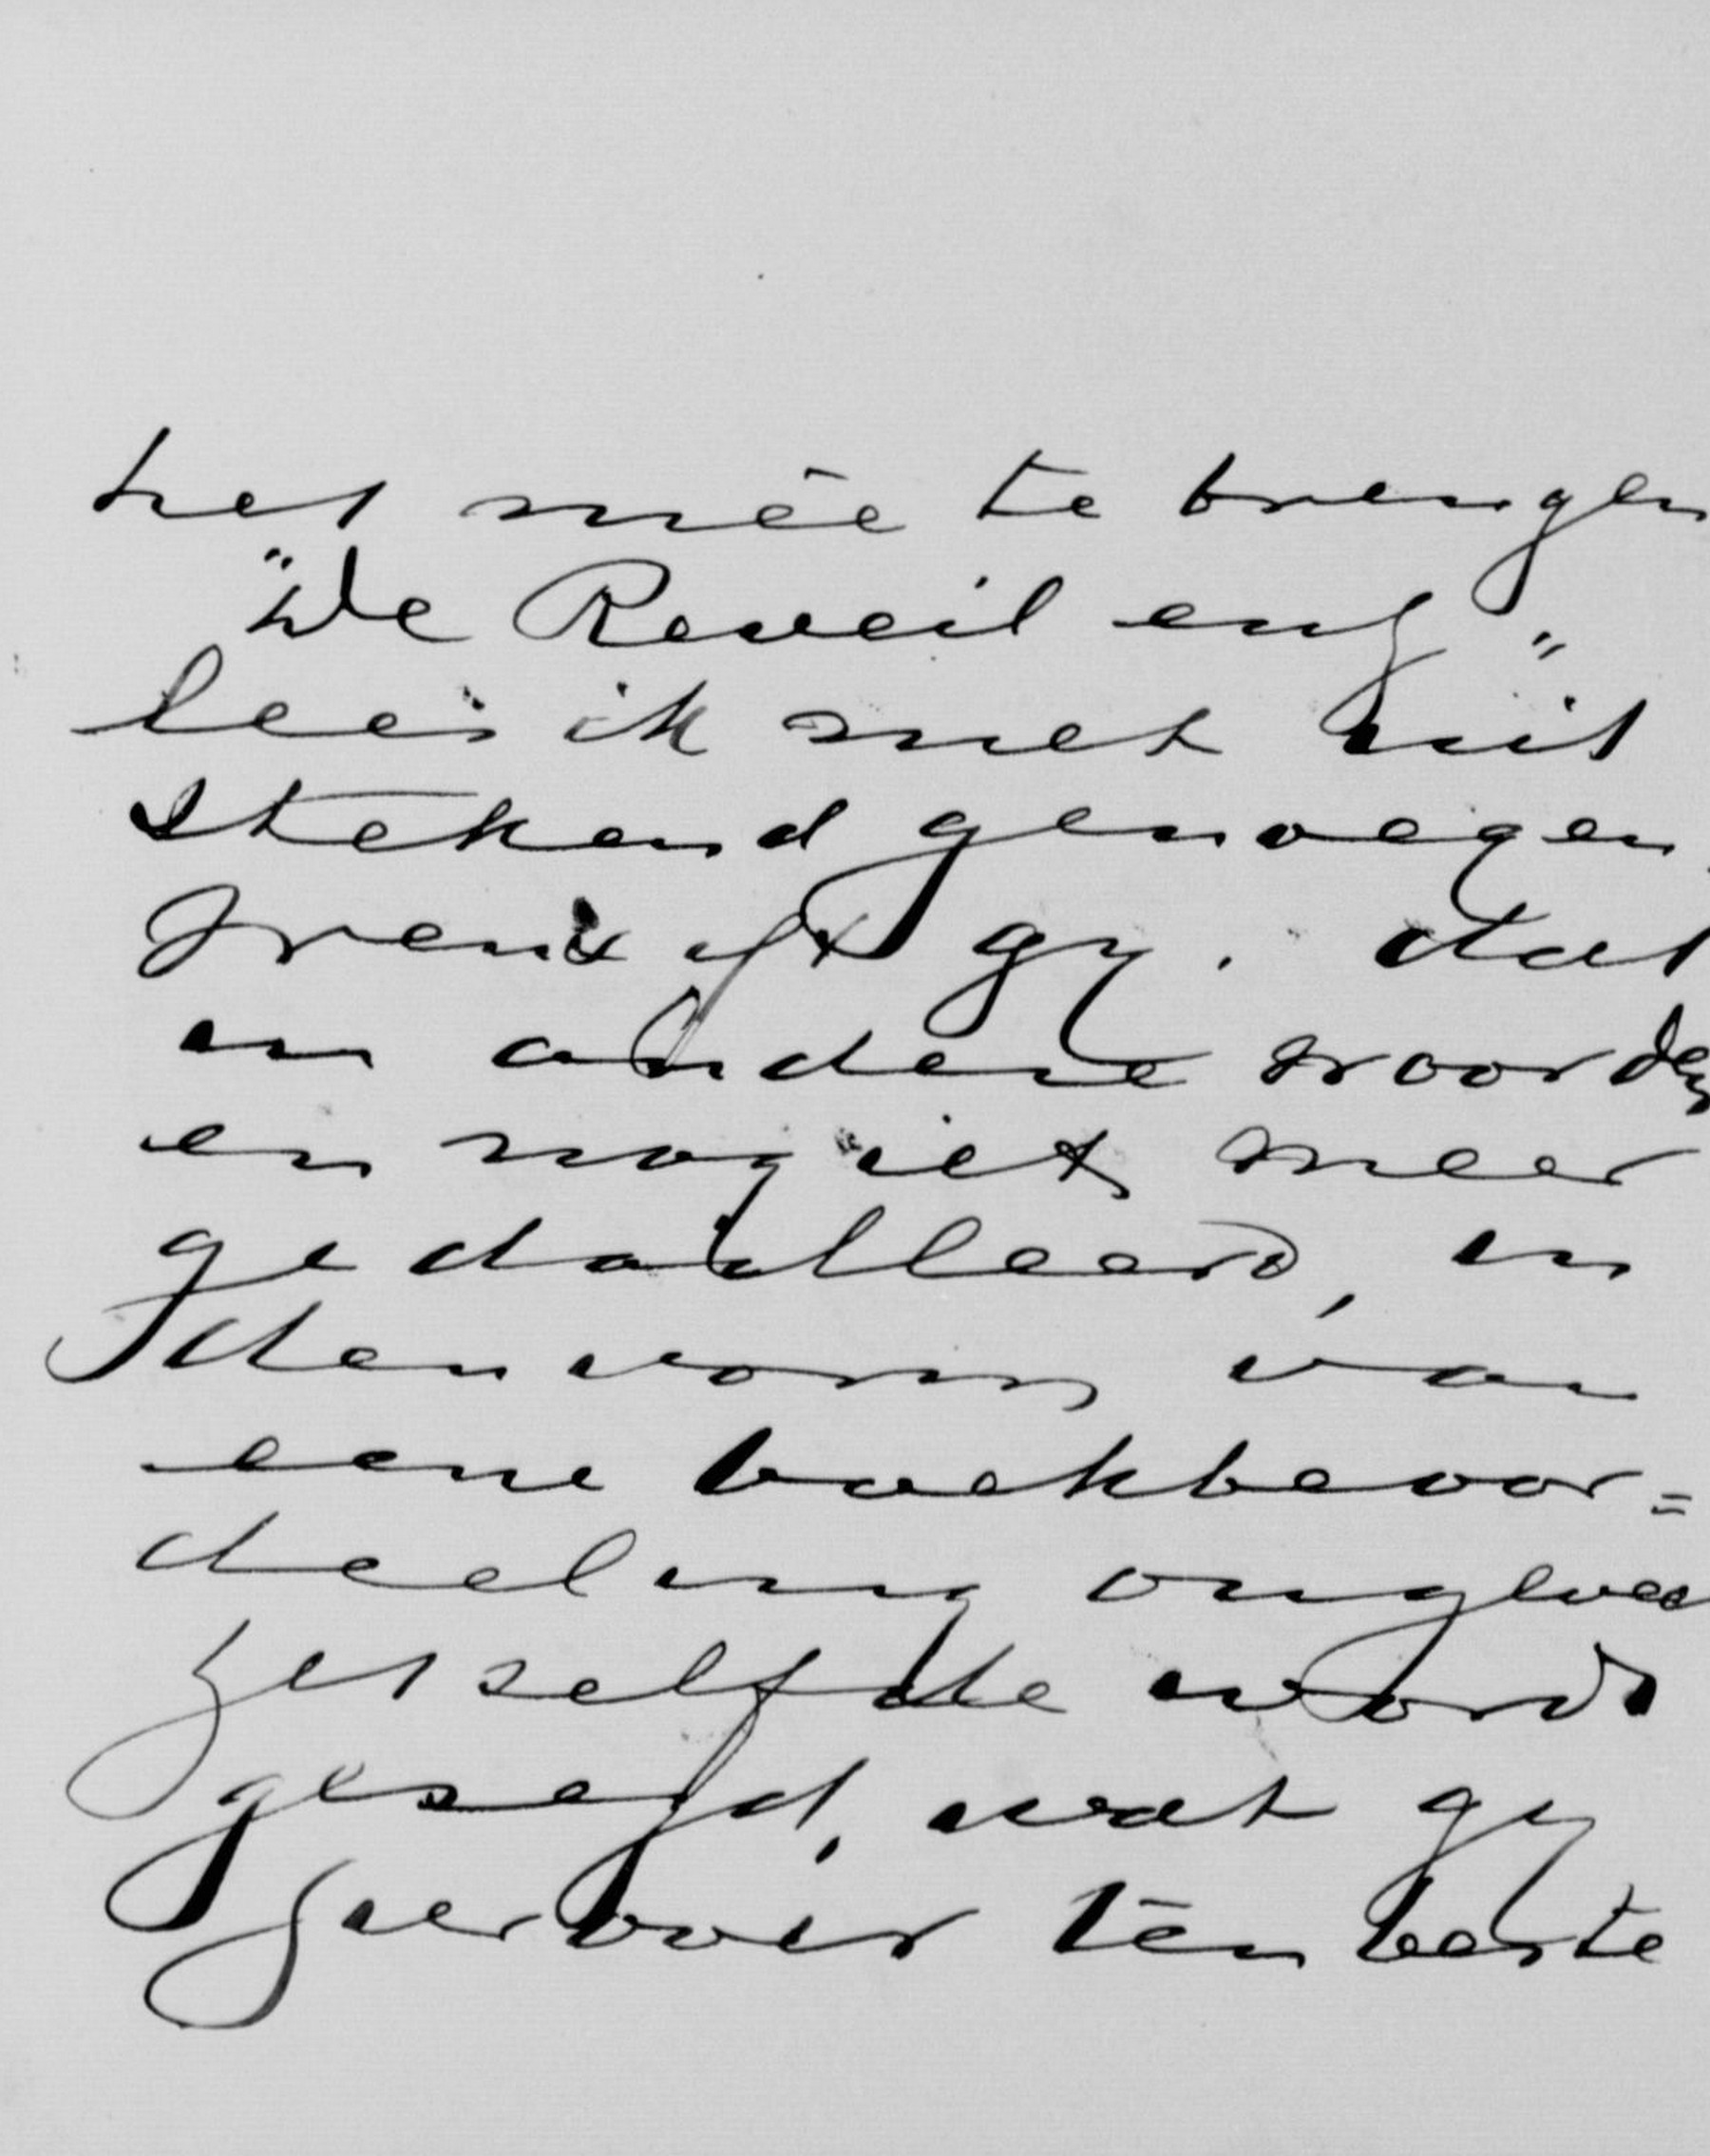 het meê te brengen
"De Reveil enz"
lees ik met uit
stekend genoegen.
Wenscht gy. dat
in andere woorden
en nog iets meer
gedailleerd, in
den vorm van
eene boekbeoor=
deeling ongeveer
hetzelfde word
gezegd, wat gy
hiervoór ten beste